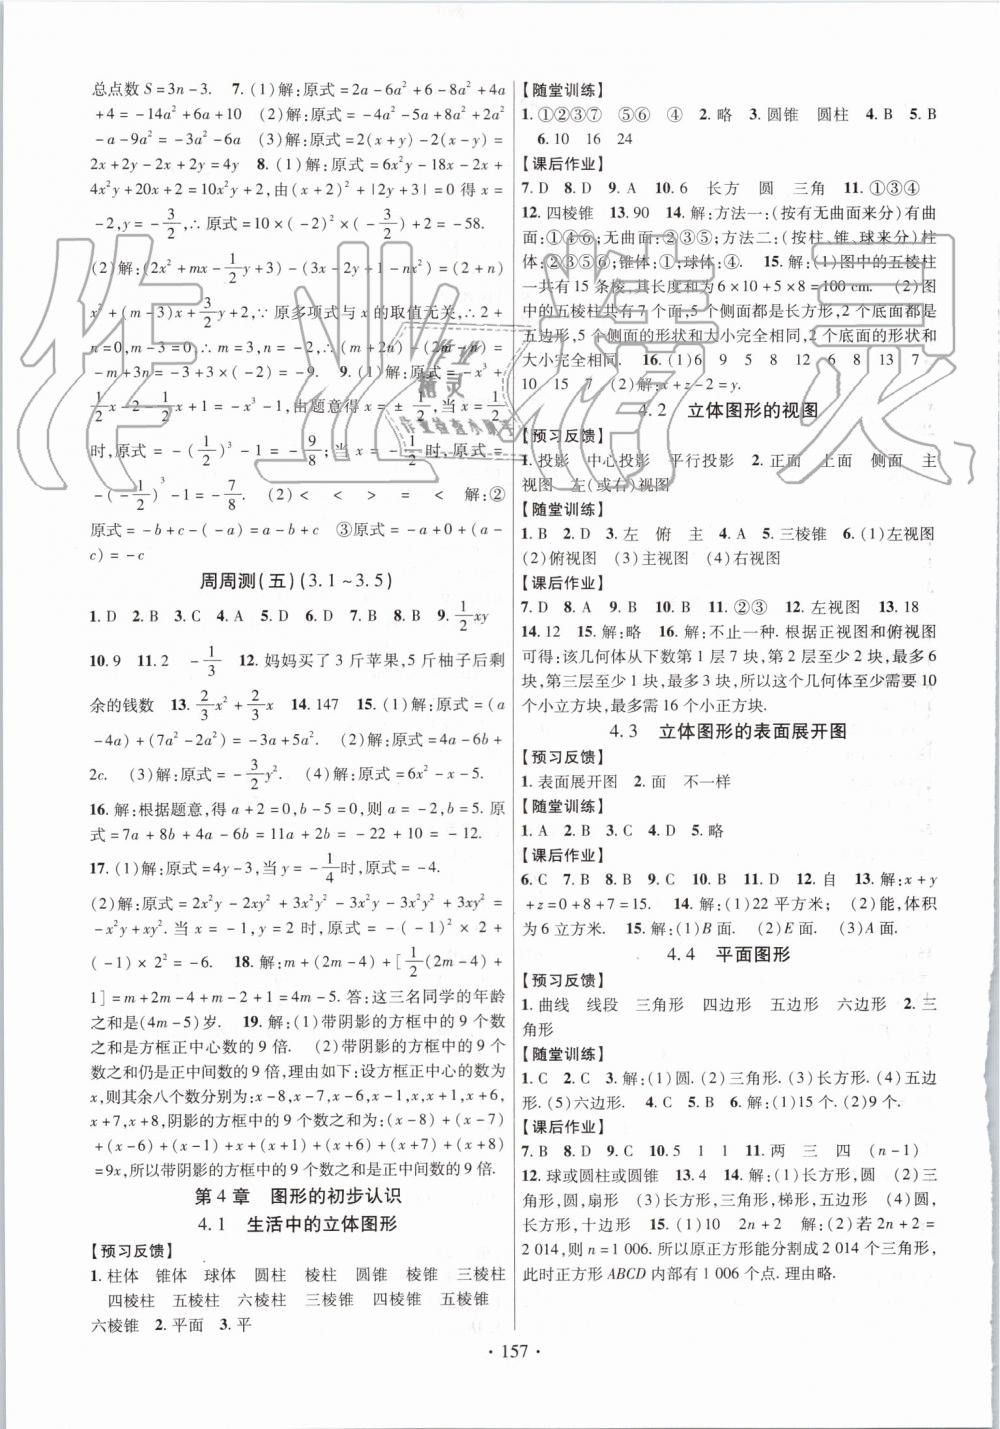 总点数 S=3n-3. 7. (1)解:原式=2a-6a²+6-8a²+4a
+4=-14a²+6a+10 (2)解:原式=-4a²-5a+8a²+2a²
-a-9a²=-3a²-6a (3)解:原式=2(x+y)-2(x-y)=
2x+2y-2x+2y=4y 8. (1)解:原式=6x²y-18x-2x+
4x²y+20x+2=10x²y+2,由(x+2)²+|2y+3|=0得 x=
-2,y=-3/2,∴原式=10×(-2)²×(-3/2)+2=-58.
(2)解:(2x²+mx-1/2y+3)-(3x-2y+1-nx²)=(2+n)
x²+(m-3)x+3/2y+2,∵原多项式与x的取值无关,∴2+
n=0,m-3=0∴m=3,n=-2,∴(m+2n)-(2m-n)=
-m+3n=-3+3×(-2)=-9. 9. (1)解:原式=-x³+
1/2x-2-1/2x+1=-x³-1,由题意得 x=±1/2,当 x=1/2
时,原式=-(1/2)³-1=-9/8;当 x=-1/2时,原式=
-(-1/2)³-1=-7/8. (2)< < > = < 解:②
原式=-b+c-(-a)=a-b+c ③原式=-a+0+(a-
c)=-c
周周测(五)(3.1~3.5)
1. D 2. B 3. C 4. A 5. D 6. D 7. B 8. B 9. 1/2xy
10. 9 11. 2 -1/3 12. 妈妈买了3斤苹果,5斤柚子后剩
余的钱数 13. 2/3x²+2/3x 14. 147 15. (1)解:原式=(a
-4a)+(7a²-2a²)=-3a+5a² (2)解:原式=4a-6b+
2c. (3)解:原式=-3/2y². (4)解:原式=6x²-x-5.
16. 解:根据题意,得 a+2=0,b-5=0,则 a=-2,b=5. 原
式=7a+8b+4a-6b=11a+2b=-22+10=-12.
17. (1)解:原式=4y-3,当 y=-1/4时,原式=-4.
(2)解:原式=2x²y-2xy²+3x²y²-3x²y-3x²y²+3xy²=
-x²y+xy². 当 x=-1,y=2时,原式=-(-1)²×2+
(-1)×2²=-6. 18. 解:m+(2m-4)+[1/2(2m-4)+
1]=m+2m-4+m-2+1=4m-5. 答:这三名同学的年龄
之和是(4m-5)岁. 19. 解:(1)带阴影的方框中的9个数
之和是方框正中心数的9倍. (2)带阴影的方框中的9个
数之和仍是正中间数的9倍,理由如下:设方框正中心的数为
x,则其余八个数分别为:x-8,x-7,x-6,x-1,x+1,x+6,
x+7,x+8,阴影的方框中的9个数之和为(x-8)+(x-7)
+(x-6)+(x-1)+x+(x+1)+(x+6)+(x+7)+(x+8)
=9x,所以带阴影的方框中的9个数之和是正中间数的9倍.
第4章 图形的初步认识
4.1 生活中的立体图形
【预习反馈】
1. 柱体 锥体 球体 圆柱 棱柱 圆锥 棱锥 三棱柱
四棱柱 五棱柱 六棱柱 三棱锥 四棱锥 五棱锥
六棱锥 2. 平面 3. 平
【随堂训练】
1. ①②③⑦ ⑤⑥ ④ 2. 略 3. 圆锥 圆柱 4. B 5. B
6. 10 16 24
【课后作业】
7. D 8. D 9. A 10. 6 长方 圆 三角 11. ①③④
12. 四棱锥 13. 90 14. 解:方法一:(按有无曲面来分)有曲
面:①④⑥;无曲面:②③⑤;方法二:(按柱、锥、球来分)柱
体:②③⑤⑥;锥体:①;球体:④. 15. 解:(1)图中的五棱柱
一共有15条棱,其长度和为6×10+5×8=100 cm. (2)图
中的五棱柱共有7个面;5个侧面都是长方形,2个底面都是
五边形,5个侧面的形状和大小完全相同,2个底面的形状和
大小完全相同. 16. (1)6 9 5 8 12 6 8 13 7
10 15 7 (2)解:x+z-2=y.
4.2 立体图形的视图
【预习反馈】
1. 投影 中心投影 平行投影 2. 正面 上面 侧面 主
视图 左(或右)视图
【随堂训练】
1. B 2. D 3. 左 俯 主 4. A 5. 三棱锥 6. (1)左视图
(2)俯视图 (3)主视图 (4)右视图
【课后作业】
7. D 8. A 9. B 10. B 11. ②③ 12. 左视图 13. 18
14. 12 15. 解:略 16. 解:不止一种. 根据正视图和俯视图
可得:该几何体从下数第1层7块,第2层至少2块,最多6
块,第三层至少1块,最多3块,所以这个几何体至少需要10
个小立方块,最多需16个小正方块.
4.3 立体图形的表面展开图
【预习反馈】
1. 表面展开图 2. 面 不一样
【随堂训练】
1. A 2. B 3. C 4. D 5. 略
【课后作业】
6. C 7. B 8. B 9. C 10. B 11. D 12. 自 13. 解:x+y
+z=0+8+7=15. 14. 解:(1)22平方米; (2)能,体积
为6立方米. 15. 解:(1)B面. (2)E面. (3)A面.
4.4 平面图形
【预习反馈】
1. 曲线 线段 三角形 四边形 五边形 六边形 2. 三
角形
【随堂训练】
1. C 2. C 3. 解:(1)圆. (2)三角形. (3)长方形. (4)五边
形. (5)六边形. 4. C 5. B 6. 解:(1)15个. (2)9个.
【课后作业】
7. B 8. D 9. B 10. 5 1 1 11. 两 三 四 (n-1)
12. 球或圆柱或圆锥 13. 4 14. 解:(1)长方形,圆 (2)三角
形,圆,扇形 (3)长方形,三角形,梯形,五边形 (4)圆,
长方形,十边形 15. (1)10 2n+2 解:(2)若2n+2=
2 014,则 n=1 006. 所以原正方形能分割成2 014个三角形,
此时正方形ABCD内部有1 006个点. 理由略.
· 157 ·
作业精灵